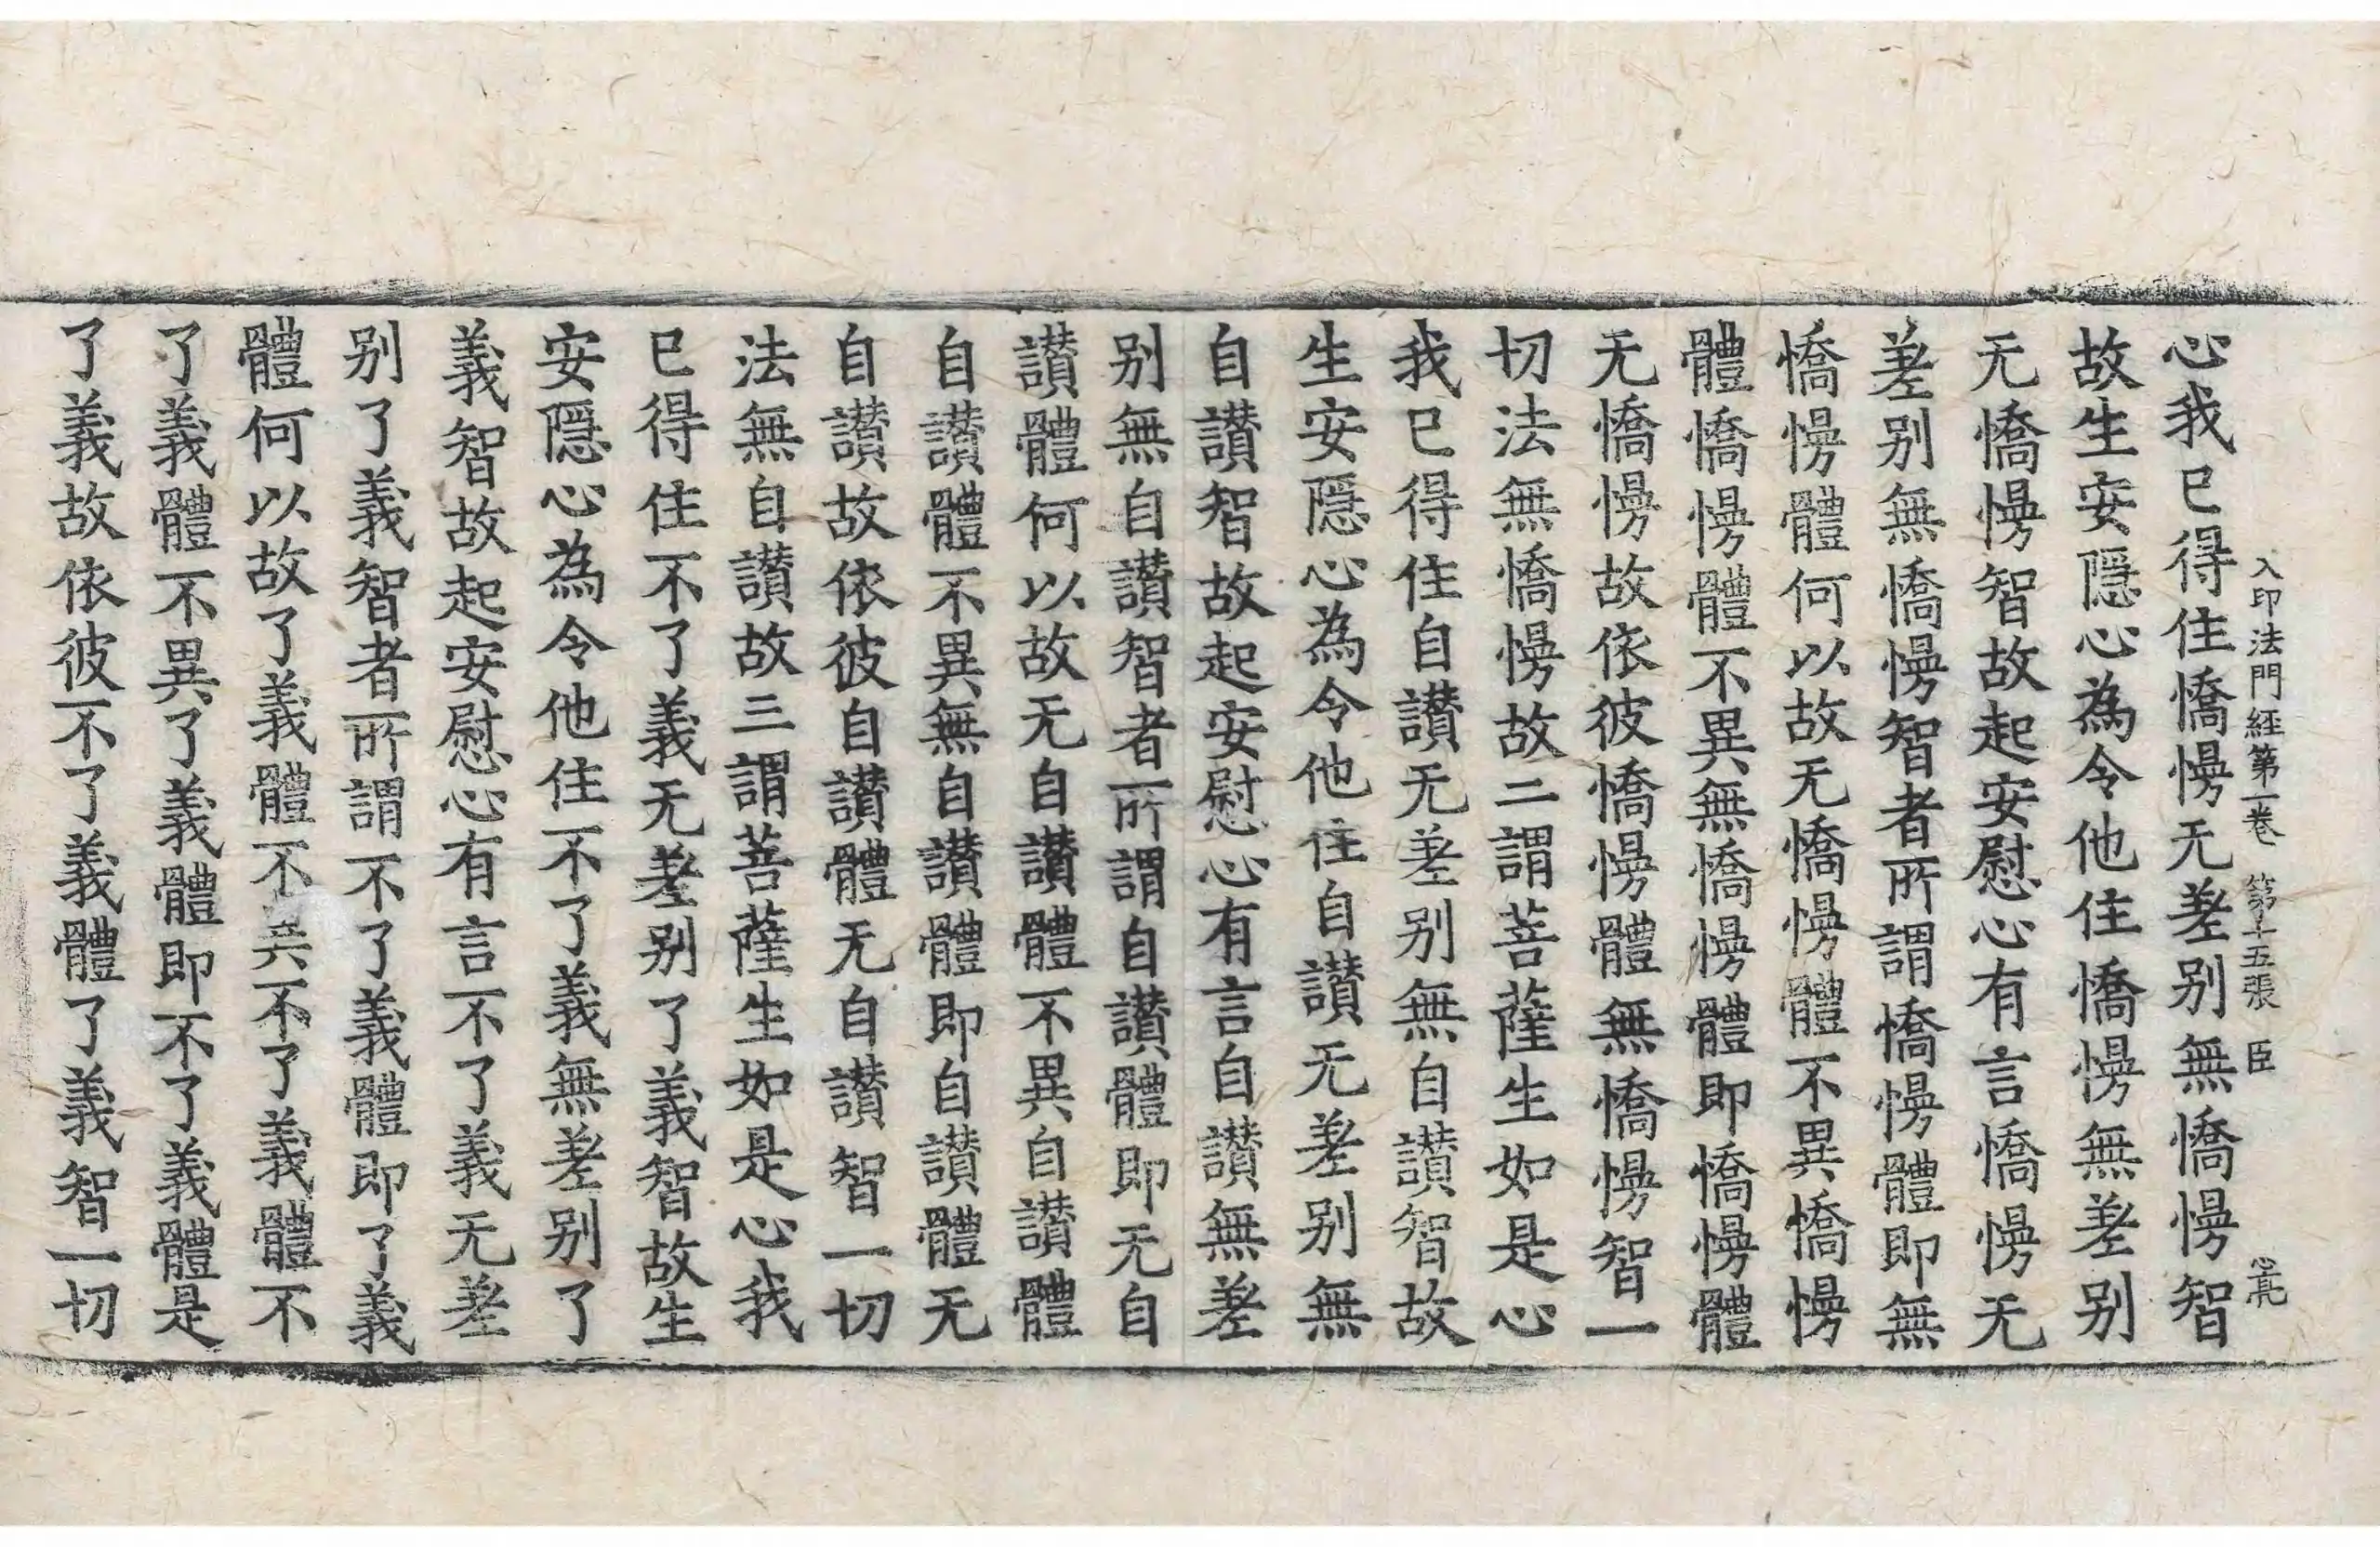 入印法門経第一卷 第十五張 臣
心我已得住憍慢无差别無憍慢智
故生安隱心為令他住憍慢無差别
无憍慢智故起安慰心有言憍慢无
差别無憍慢智者所謂憍慢體即無
憍慢體何以故无憍慢體不異憍慢
體憍慢體不異無憍慢體即憍慢體
无憍慢故依彼憍慢體無憍慢智一
切法無憍慢故二謂菩薩生如是心
我已得住自讃无差别無自讃智故
生安隱心為令他住自讃无差别無
自讃智故起安慰心有言自讃無差
别無自讃智者所謂自讃體即无自
讃體何以故无自讃體不異自讃體
自讃體不異無自讃體即自讃體无
自讃故依彼自讃體无自讃智一切
法無自讃故三謂菩薩生如是心我
已得住不了義无差别了義智故生
安隱心為令他住不了義無差别了
義智故起安慰心有言不了義无差
别了義智者所謂不了義體即了義
體何以故了義體不異不了義體不
了義體不異了義體即不了義體是
了義故依彼不了義體了義智一切